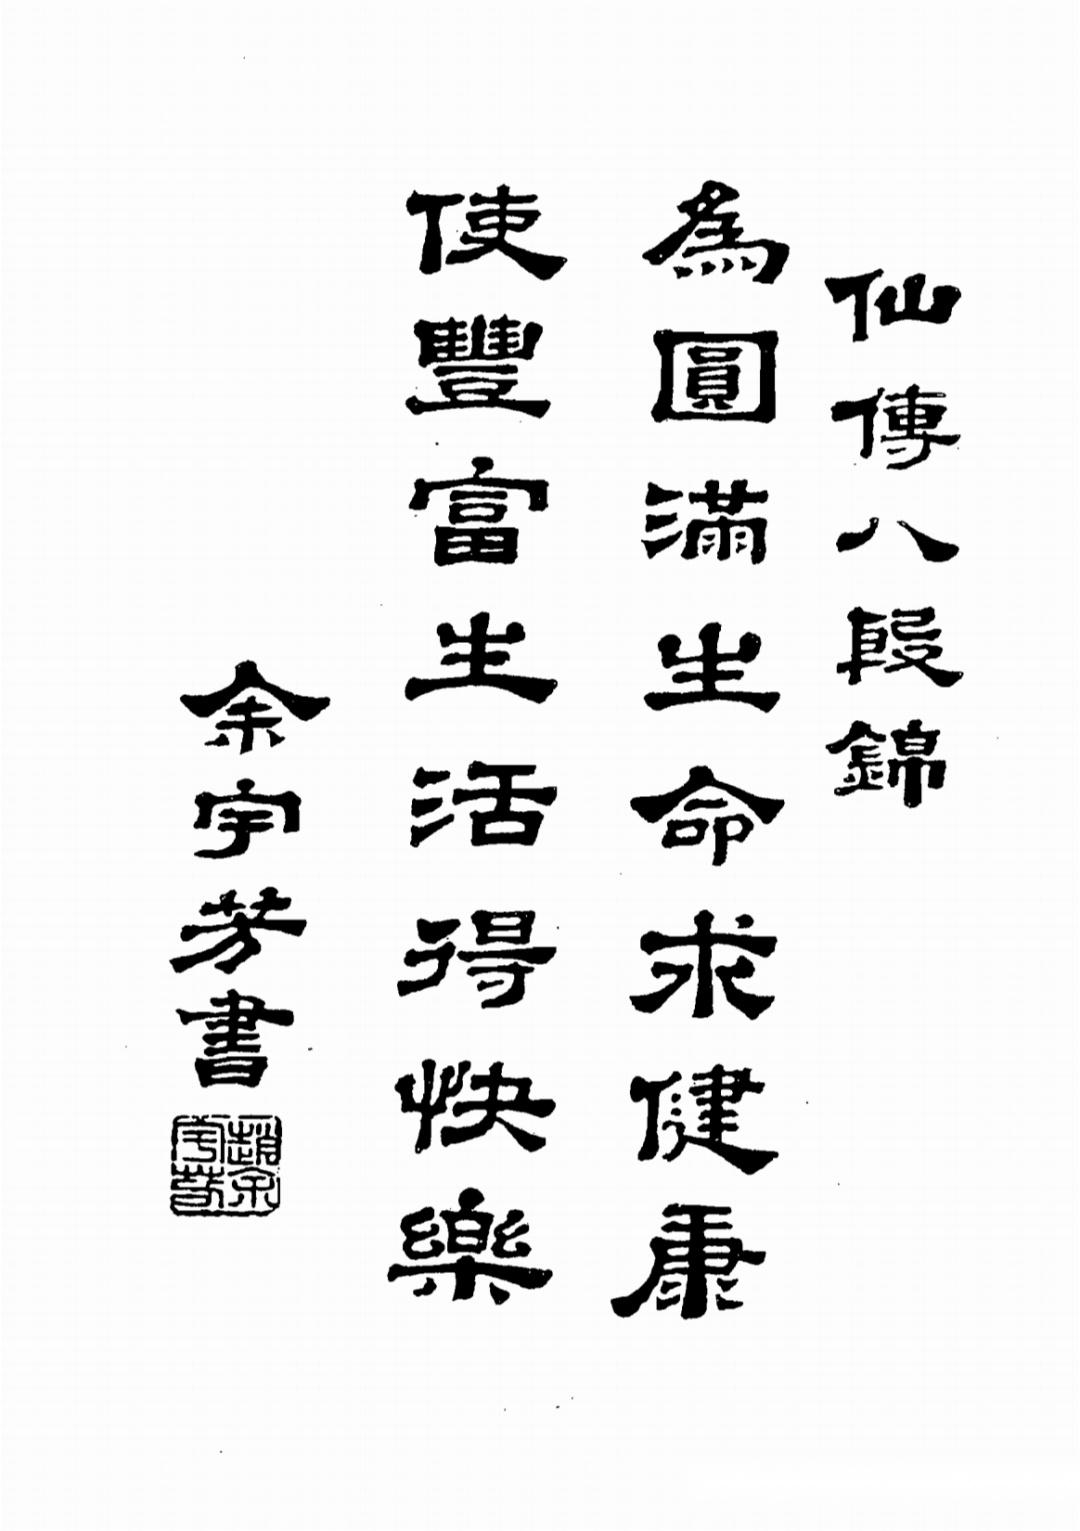 仙傳八段錦
為圓滿生命求健康
使豐富生活得快樂
余宇芳書
趙余
宇芳